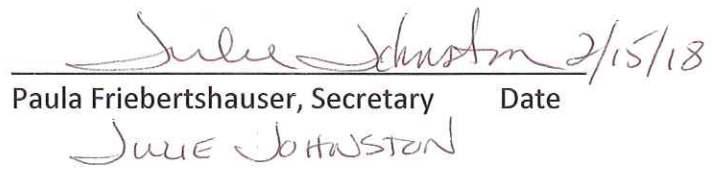 Julie Johnston 2/15/18
Paula Friebertshauser, Secretary Date
JULIE JOHNSTON